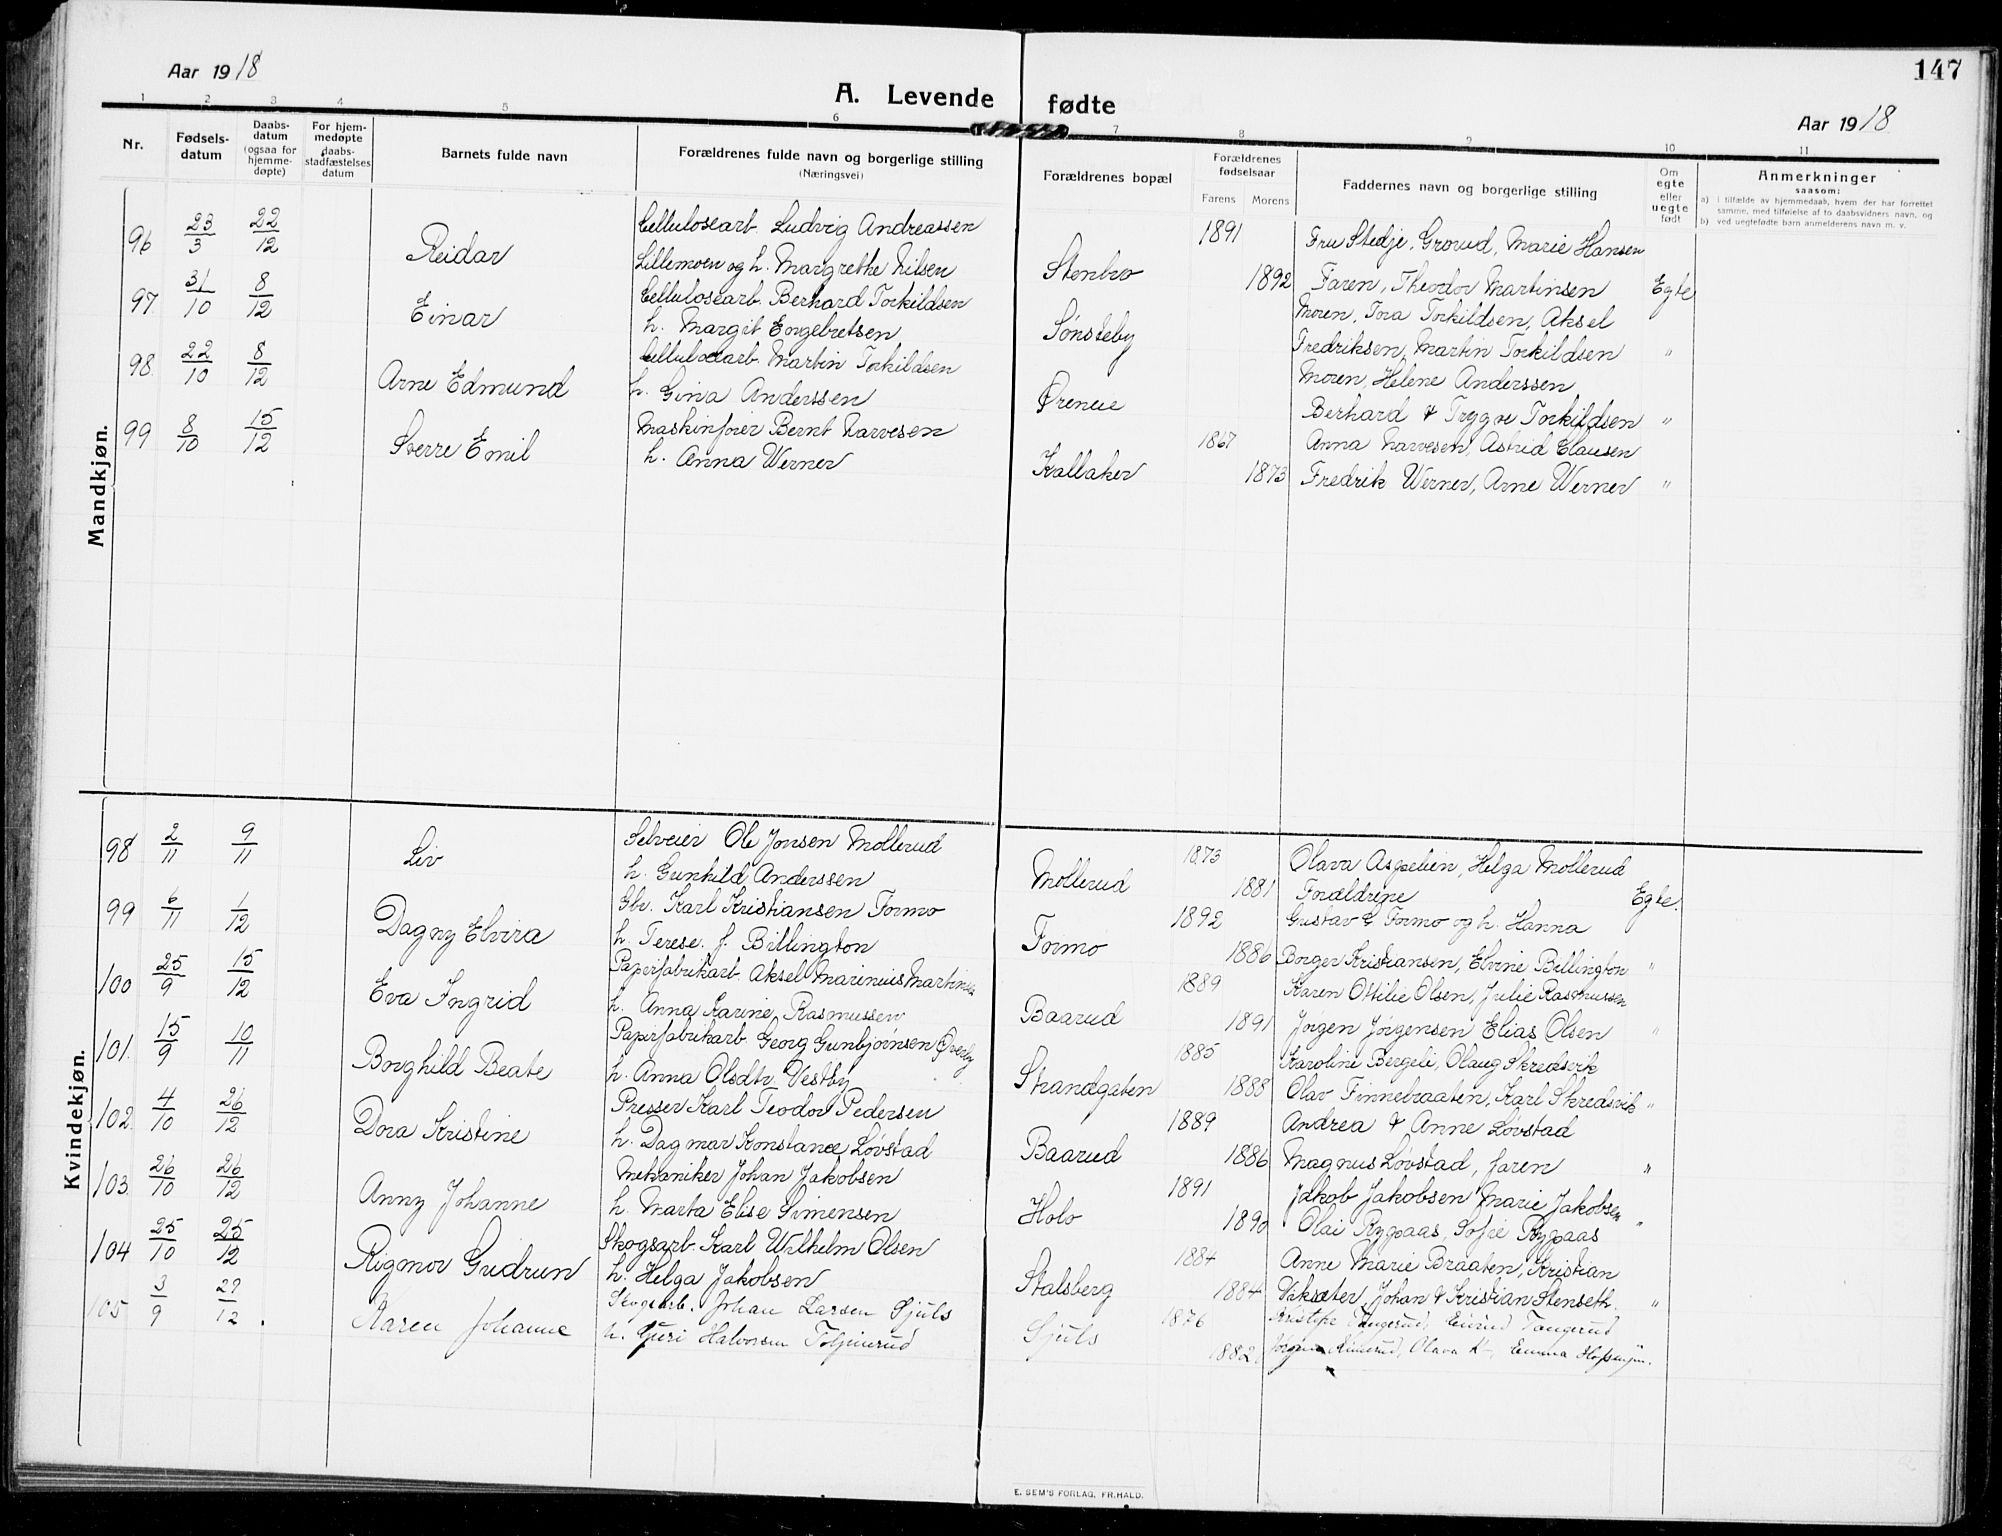 Aar 1918
A. Levende fødte
147
Aar 1918
1 2 3 4 5 6 7 8 9 10 11
Nr.
Fødselsdatum
Daabsdatum (ogsaa for hjemmedøpte)
For hjemmedøpte daabsstadfæstelses datum
Barnets fulde navn
Forældrenes fulde navn og borgerlige stilling
(Næringsvei)
Forældrenes bopæl
Forældrenes fødselsaar
Farens Morens
Faddernes navn og borgerlige stilling
Om egte eller uegte født
Anmerkninger
saasom:
a) i tilfælde av hjemmedaab, hvem der har forrettet samme, med tilføielse af to daabsvidners navn, og
b) ved uegtefødte barn anmelderens navn m. v.
Mandkjøn.
96 23/3 22/12 Reidar Cellulosearb. Ludvig Andreassen 1891 Fru Stedje, Grorud, Marie Hansen
Lillemoen og h. Margrethe Nilsen Stenbro 1892 Faren, Theodor Martinsen Egte
97. 31/10 8/12 Einar Cellulosearb. Berhard Torkildsen Moren, Tora Torkildsen, Aksel
h. Margit Engebretsen Sønsteby Fredriksen, Martin Torkildsen "
98. 22/10 8/12 Arne Edmund Cellulosearb. Martin Torkildsen Moren, Helene Anderssen
h. Gina Anderssen Øreneie Berhard & Trygve Torkildsen "
99 8/10 15/12 Sverre Emil Maskinfører Bernt Narvesen 1867 Anna Narvesen, Astrid Clausen
h. Anna Werner Kallaker 1873 Fredrik Werner, Arne Werner "
Kvindekjøn.
98 2/11 9/11 Liv Selveier Ole Jonsen Mollerud 1873 Olava Aspelien, Helga Mollerud
h. Gunhild Anderssen Mollerud 1881 Forældrene Egte.
99 6/11 1/12 Dagny Elvira Gbr. Karl Kristiansen Formo 1892 Gustav & Formo og h. Hanna
h. Terese. f. Billington Formo 1886 Borger Kristiansen, Elvine Billington "
100 25/9 15/12 Eva Ingrid Papirfabrikarb. Aksel Marinius Martinsen 1889 Karen Ottilie Olsen, Julie Rasmussen
h. Anna Karine Rasmussen Baarud 1891 Jørgen Jørgensen Elias Olsen "
101. 15/9 10/11 Borghild Beate Papirfabrikarb. Georg Gunbjørnsen Øverby 1885 Karoline Bergeli, Olaug Skredsvik
h. Anna Olsdtr. Vestby Strandgaten 1888 Olav Finnebraaten, Karl Skredsvik "
102. 4/10 26/12 Dora Kristine Presser Karl Teodor Pedersen 1889 Andrea & Anne Løvstad
h. Dagmar Konstance Løvstad Baarud 1886 Magnus Løvstad, faren "
103. 26/10 26/12 Anny Johanne Mekaniker Johan Jakobsen 1891 Jakob Jakobsen Marie Jakobsen
h. Marta Elise Simensen Holo 1890 Olai Rygaas, Sofie Rygaas "
104 25/10 25/12 Rigmor Gudrun Skogsarb. Karl Wilhelm Olsen 1884 Anne Marie Braaten, Kristian
h. Helga Jakobsen Stalsberg 1884 Vaksæter, Johan & Kristian Stenseth. "
105 3/9 29/12. Karen Johanne Skogsarb. Johan Larsen Sjuls 1876 Tangerud, Tangerud
h. Guri Halvorsen Sjuls 1882 Olava K–, Emma
E. SEM'S FORLAG, FR.HALD.